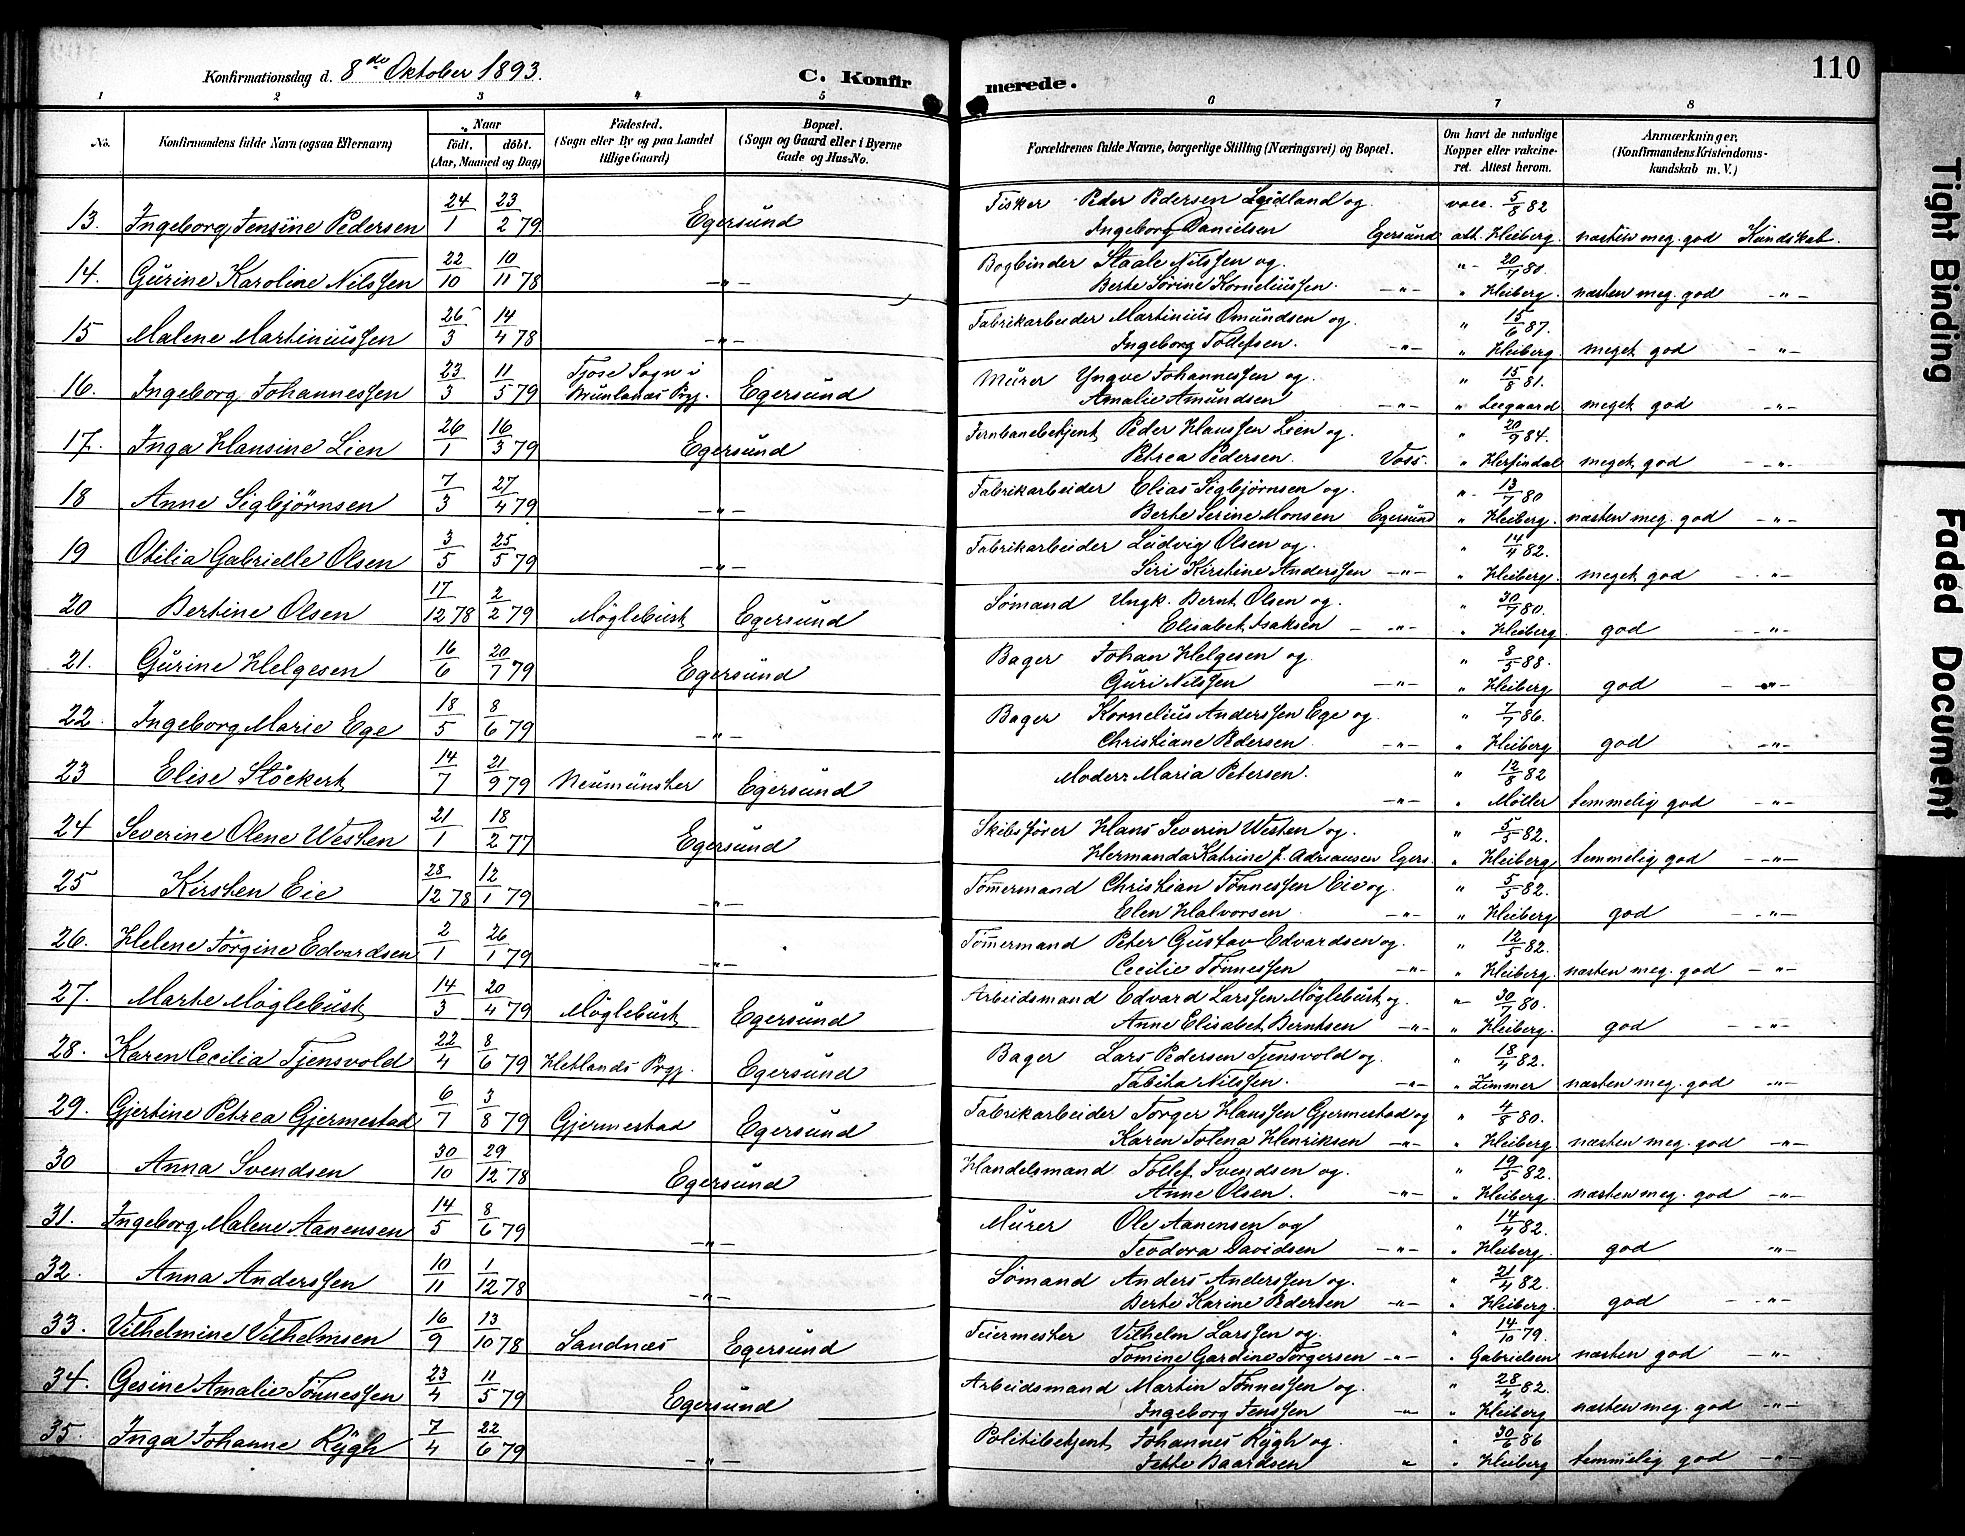 Konfirmationsdag d. 8de Oktober 1893. C. Konfirmerede. 110
1 2 3 4 5 6 7 8
No. Konfirmandens fulde Navn (ogsaa Efternavn) Naar födt. döbt. (Aar, Maaned og Dag) Födested. (Sogn eller By og paa Landet tillige Gaard) Bopæl. (Sogn og Gaard eller i Byerne Gade og Hus-No.) Forældrenes fulde Navne, borgerlige Stilling (Næringsvei) og Bopæl. Om havt de naturlige Kopper eller vakcineret. Attest herom. Anmærkninger. (Konfirmandens Kristendomskundskab m. V.)
13. Ingeborg Jensine Pedersen 24/1 23/2 79 Egersund Fisker Peder Pedersen Leidland og vacc. 5/8 82
Ingeborg Danielsen Egersund att. Heiberg. næsten meg. god Kundskab.
14. Gurine Karoline Nilssen 22/10 10/11 78 -"- Bogbinder Staale Nilssen og "- 20/7 80.
Berte Sørine Korneliussen. -"- " Heiberg. næsten meg. god -"-
15 Malene Martiniussen 26/3 14/4 78 -"- Fabrikarbeider Martinius Omundsen og " 15/6 87.
Ingeborg Tollefsen. -"- " Heiberg. meget god -"-
16. Ingeborg Johannessen 23/3 11/5 79 Tjose Sogn i Brunlanæs Prgj. Egersund Murer Yngve Johannessen og " 15/8 81.
Amalie Amundsen -"- " Leegaard meget god -"-
17. Inga Hansine Lien 26/1 16/3 79 Egersund Jernbanebetjent Peder Hanssen Lien og " 20/9 84.
Petrea Pedersen. Voss. " Herfindal meget god -"-
18 Anne Sigbjørnsen 7/3 27/4 79 -"- Fabrikarbeider Elias Sigbjørnsen og "- 13/7 80
Berte Serine Monsen Egersund " Heiberg. næsten meg. god -"-
19 Otilia Gabrielle Olsen 3/5 25/5 79 -"- Fabrikarbeider Ludvig Olsen og " 14/4 82.
Siri Kirstine Anderssen -"- " Heiberg. meget god -"-
20 Bertine Olsen 17/12 78 2/2 79 Møglebust Egersund Sømand Ungk. Bernt Olsen og " 30/7 80.
Elisabet Isaksen -"- " Heiberg god -"-
21. Gurine Helgesen 16/6 20/7 79 Egersund Bager Johan Helgesen og " 8/5 88.
Guri Nilssen -"- " Heiberg god -"-
22. Ingeborg Marie Ege 18/5 8/6 79 -"- Bager Kornelius Anderssen Ege og " 7/7 86.
Christiane Pedersen -"- " Heiberg god -"-
23 Elise Støckert 14/7 21/9 79 Neumünster Egersund Moder: Maria Petersen. " 12/8 82
-"- " Møller temmelig god -"-
24 Severine Olene Westen 21/1 18/2 77 Egersund Skibsfører Hans Severin Westen og " 5/5 82.
Hermanda Katrine f. Adriansen Egers. " Heiberg temmelig god -"-
25 Kirsten Eie 28/12 78 12/1 79 -"- Tømmermand Christian Tønnessen Eie og " 5/5 82.
Elen Halvorsen -"- " Heiberg god -"-
26. Helene Jørgine Edvardsen 2/1 26/1 79 -"- Tømmermand Peter Gustav Edvardsen og " 12/5 82.
Cecilie Tønnessen -"- " Heiberg. næsten meg. god -"-
27. Marte Møglebust 14/3 20/4 79 Møglebust Egersund Arbeidsmand Edvard Larssen Møglebust og "- 30/7 80.
Anne Elisabet Berntsen -"- " Heiberg. god -"-
28. Karen Cecilia Tjensvold 22/4 8/6 79 Hetlands Prgj. Egersund Bager Lars Pedersen Tjensvold og " 18/4 82.
Tabita Nilssen. -"- " Zimmer næsten meg. god -"-
29. Gjertine Petrea Gjermestad 6/7 3/8 79 Gjermestad Egersund Fabrikarbeider Torger Hanssen Gjermestad og " 4/8 80.
Karen Tolena Henriksen -"- " Heiberg næsten meg. god -"-
30 Anna Svendsen 30/10 29/12 78 Egersund Handelsmand Tollef Svendsen og " 19/5 82.
Anne Olsen. -"- " Heiberg. næsten meg. god -"-
31. Ingeborg Malene Aanensen 14/5 8/6 79 -"- Murer Ole Aanensen og " 14/4 82.
Teodora Davidsen -"- " Heiberg. god "-
32. Anna Anderssen 10/11 1/12 78 -"- Sømand Anders Anderssen og " 21/4 82.
Berte Karine Pedersen -"- " Heiberg. god -"-
33. Vilhelmine Vilhelmsen 16/9 13/10 78 Sandnæs Egersund Feiermester Vilhelm Larssen og " 14/10 79.
Tomine Gardine Torgersen -"- " Gabrielsen næsten god -"-
34. Gesine Amalie Tønnessen 23/4 11/5 79 Egersund Arbeidsmand Martin Tønnessen og " 28/4 82.
Ingeborg Jenssen " " Heiberg næsten meg. god -"-
35. Inga Johanne Rygh 7/4 22/6 79 -"- Politibetjent Johannes Rygh og " 30/6 86
Jette Baardsen " " Heiberg temmelig god -"-
Tight Binding
Faded Document